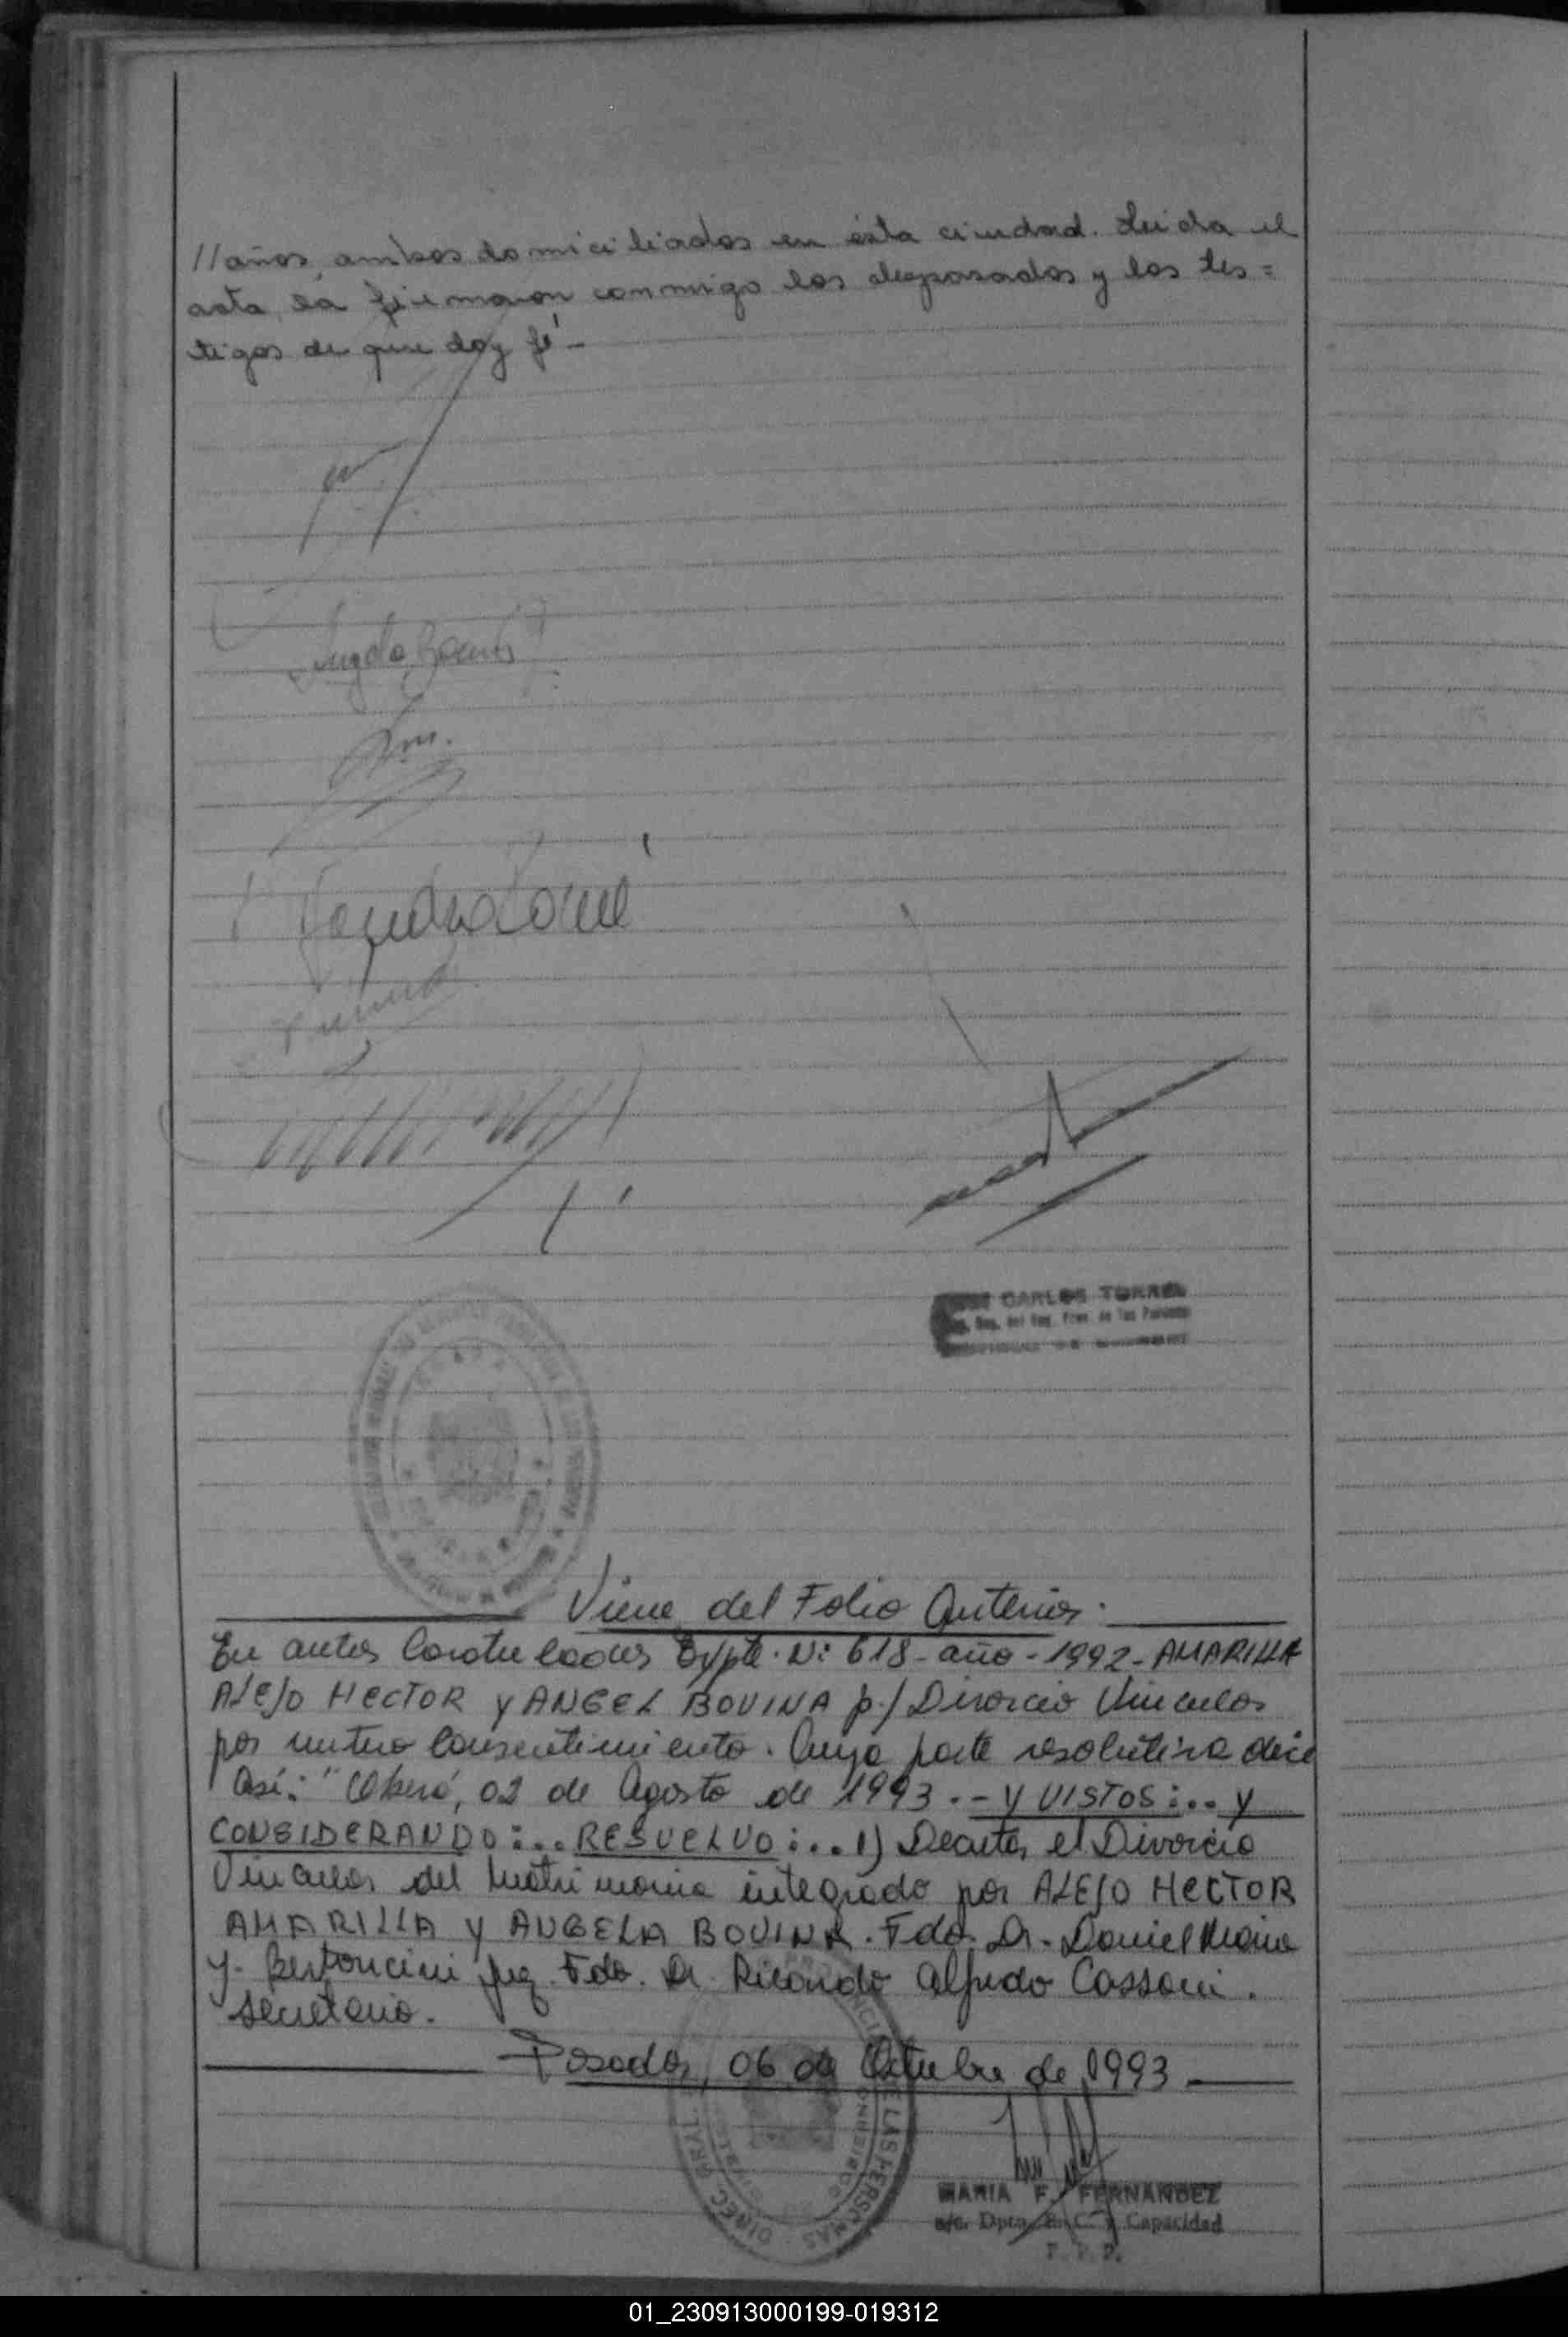 //años, ambos domiciliados en ésta ciudad. Leida el
acta, la firmaron conmigo los desposados y los tes=
tigos de que doy fé-
CARLOS TORRES
Viene del Folio Anterior.
En autos Caratulados Expte. Nº 618-año-1992-AMARILLA
ALEJO HECTOR y ANGEL BOVINA p./Divorcio Vincular
por mutuo Consentimiento. Cuya parte resolutiva dice
Así: "Oberá, 02 de Agosto de 1993.-- Y VISTOS:.. y
CONSIDERANDO:... RESUELVO:... 1) Decretar el Divorcio
Vincular del Matrimonio integrado por ALEJO HECTOR
AMARILLA Y ANGELA BOVINA. Fdo. Dr. Daniel
y. Bertoncini Juez. Fdo. Dr. Ricardo Alfredo Cassoni.
Secretario.
Posadas, 06 de Octubre de 1993
MARIA F. FERNANDEZ
a/c. Dpto. E. C. y Capacidad
DIREC. GRAL. DE LAS PERSONAS
01_230913000199-019312